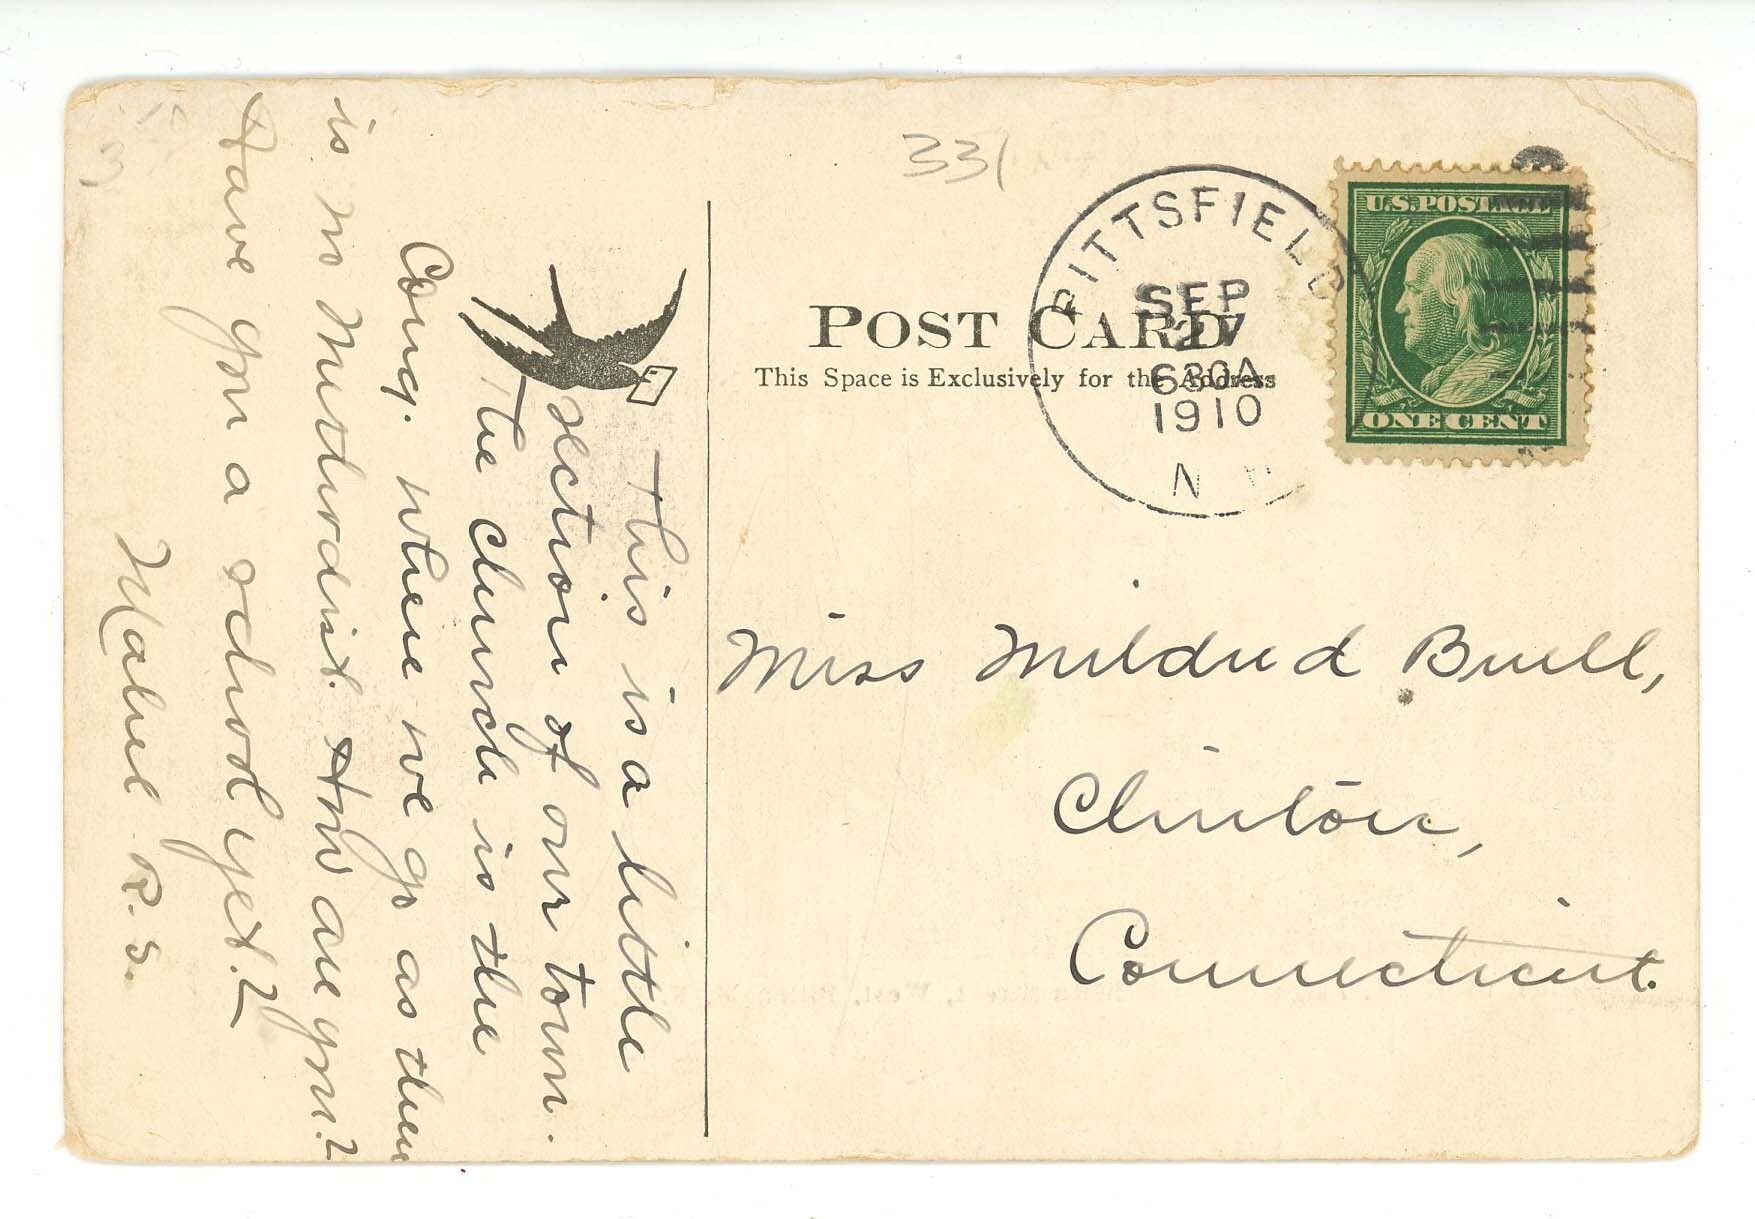 331
PITTSFIELD
SEP
27
630A
1910
N
U.S. POSTAGE
ONE CENT
POST CARD
This Space is Exclusively for the Address
This is a little
section of our town.
The church is the
Cong. where we go as there
is no Methodist. How are you?
Have you a school yet?
Mabel R. S.
Miss Mildred Buell,
Clinton,
Connecticut.